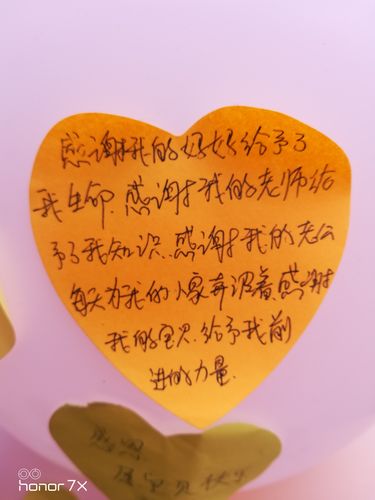 感谢我的妈妈给予了
我生命.感谢我的老师给
予了我知识.感谢我的老公
每天为我的小家奔波着.感谢
我的宝贝.给予我前
进的力量.
感恩
宝贝快乐
honor 7X